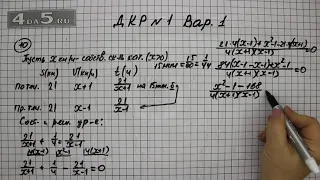 4DA5.RU
ДКР №1 Вар. 1
10
Пусть x км/ч - собств. скор. кат. (x>0)
15 мин = 15/60 = 1/4 ч
S(км) V(км/ч) t(ч)
По теч. 21 x+1 21/x+1
Пр. теч. 21 x-1 21/x-1
Сост. и реш. ур-е:
21/x+1 + 1/4 = 21/x-1
21/x+1 + 1/4 - 21/x-1 = 0
21·4(x-1)+x²-1-21·4(x+1)
4(x+1)(x-1) =0
4(x+1)(x-1) =0
x²-1-168
4(x+1)(x-1)